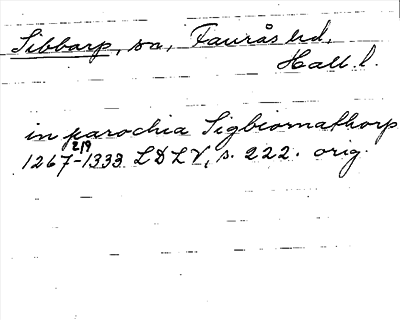 Sibbarp, sn, Faurås hd,
Hall. l.
in parochia Sigbiomathorp
1267-1333 2/9 LDLV, s. 222. orig.